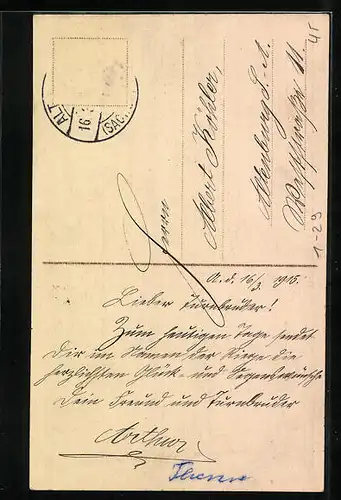 ALT
16.
(SAC
Herrn
Albert Köhler,
Altenburg S. A.
11.
1-29
A. d. 16/3. 1915.
Lieber Turnbruder!
Zum heutigen Tage sendet
Dir im Namen der Riege die
herzlichsten Glück- und Segenswünsche
Dein Freund und Turnbruder
Arthur